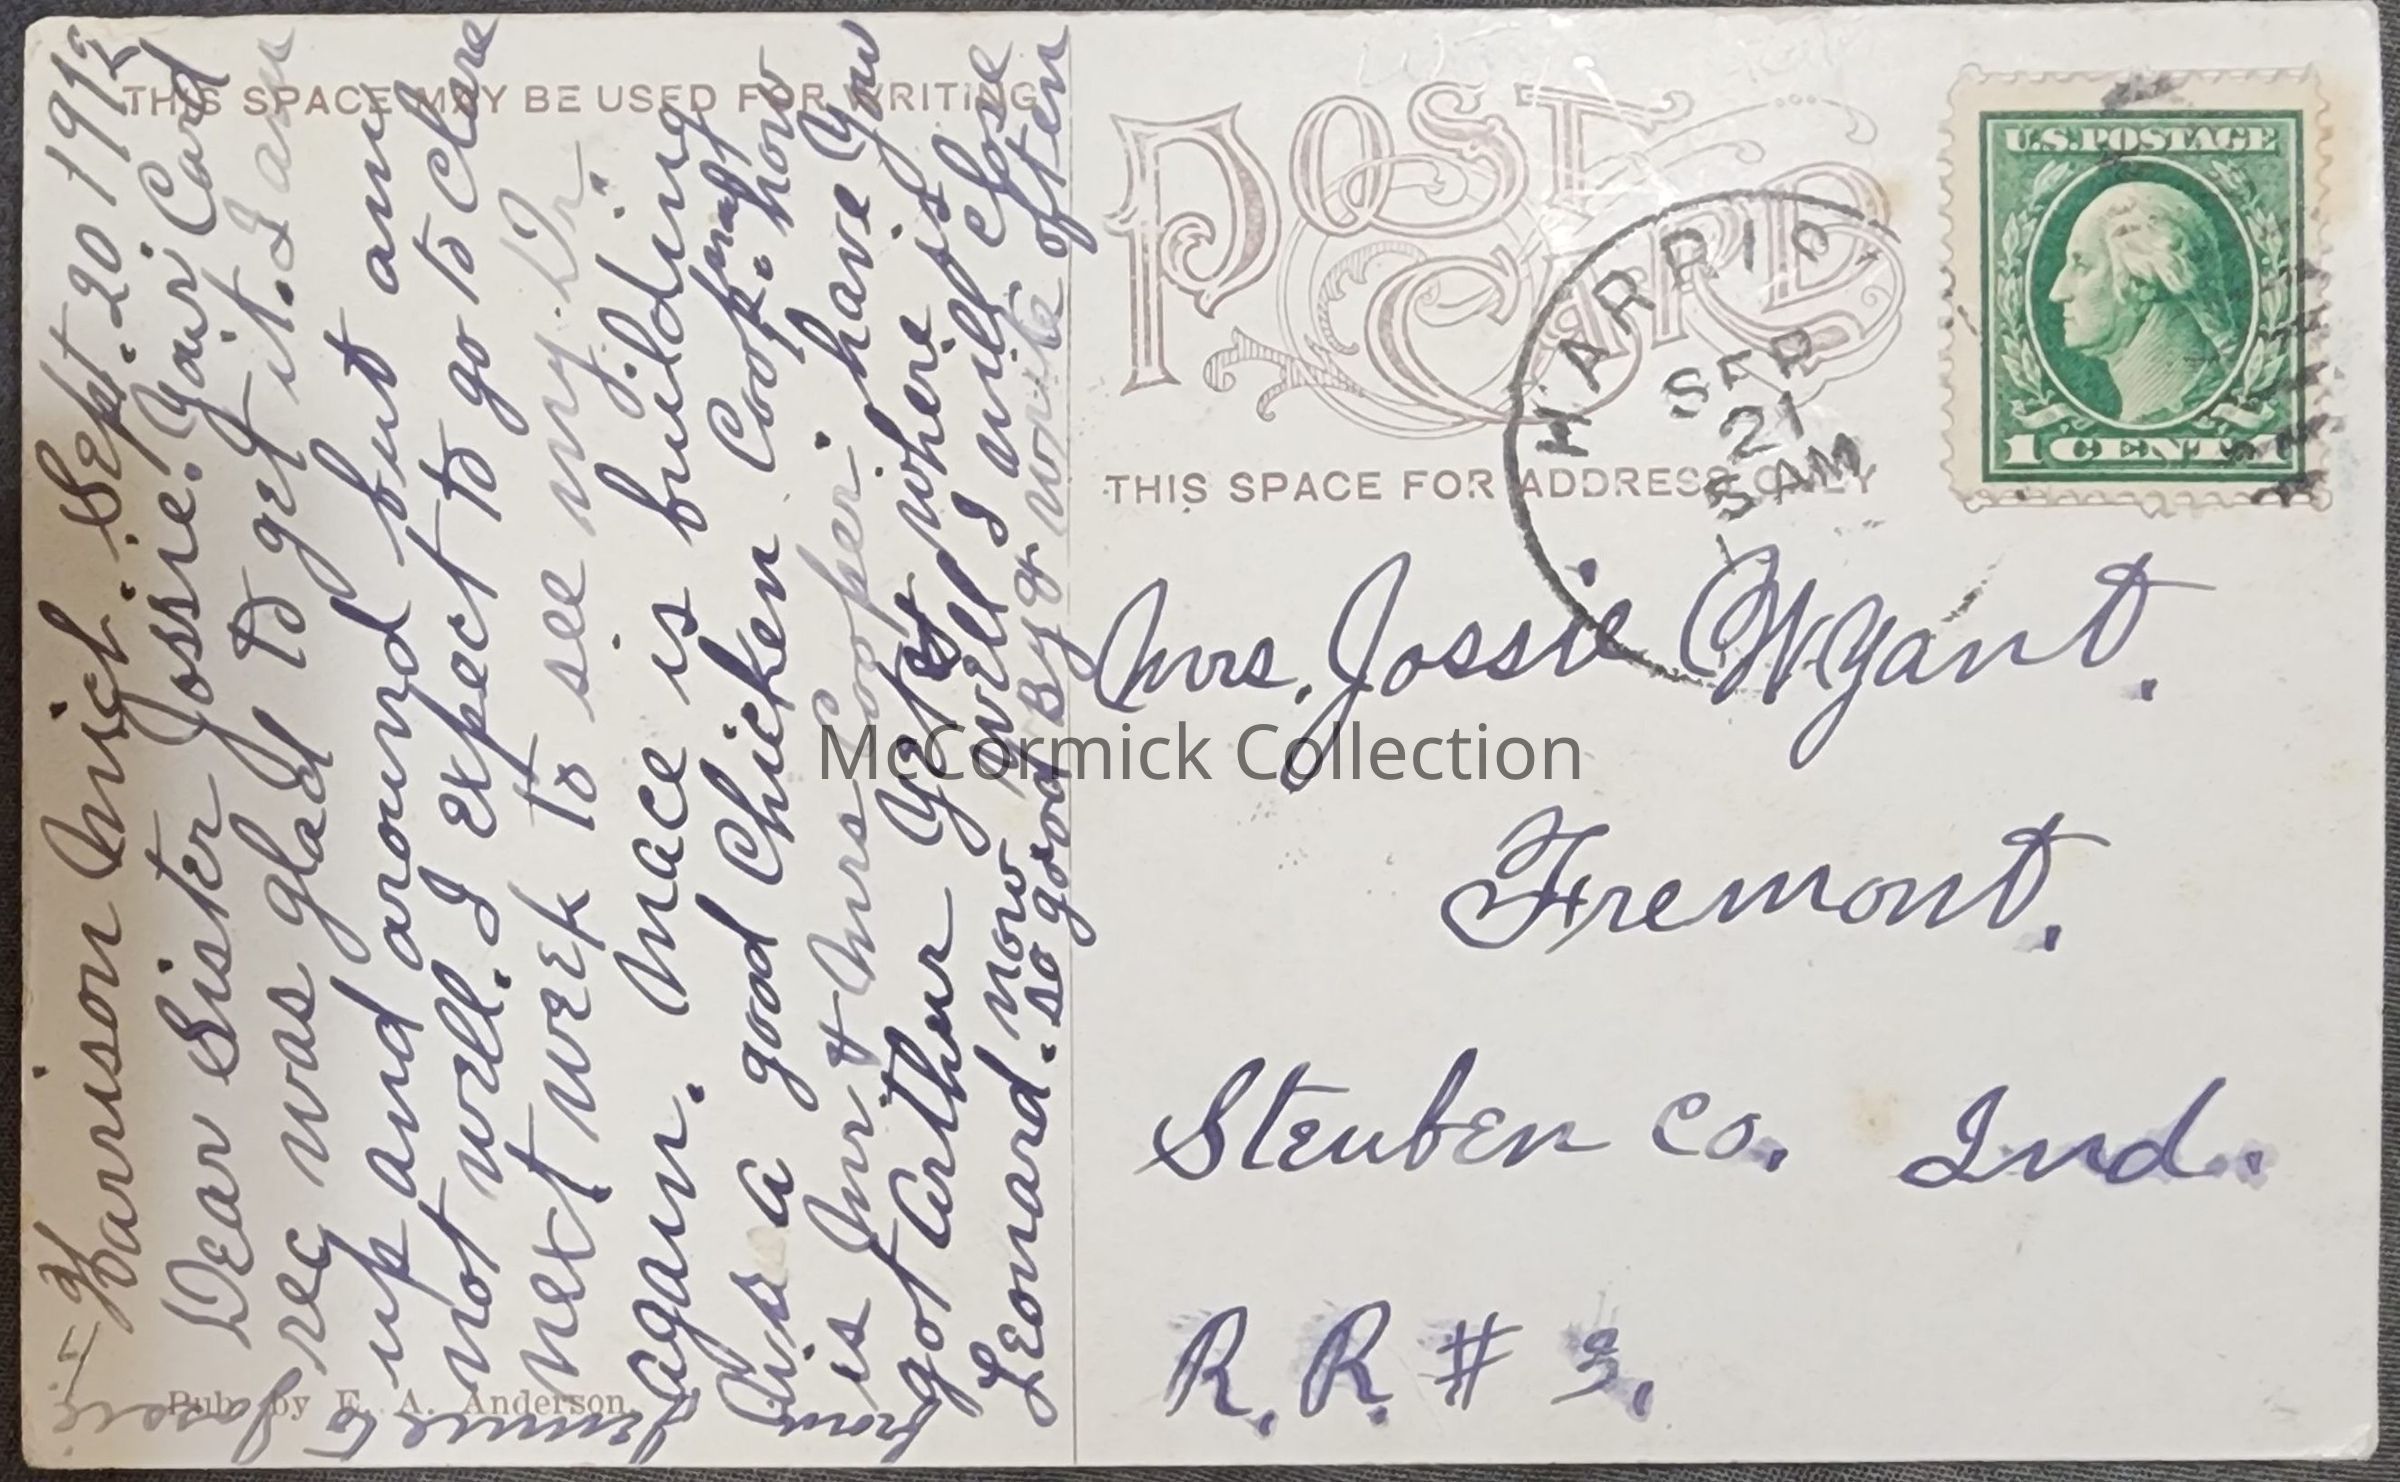 THIS SPACE MAY BE USED FOR WRITING
Harrison Mich. Sept. 20 1912
Dear Sister Jossie. Your Card
rec was glad to get it. I am
up and around but am
not well. I expect to go to Clare
next week to see my Dr.
again. Mace is building
a good Chicken Coop. how
is Mr. & Mrs Cooper. have you
got Arthur yet & where is
Leonard. now well I will close
so good By & write often
from Jennie to Jossie
Pub. by E. A. Anderson.
POST CARD
THIS SPACE FOR ADDRESS ONLY
HARRIS
SEP
21
5 AM
U.S. POSTAGE
1 CENT 1
Mrs. Jossie Wyant.
Fremont.
Steuben Co. Ind.
R. R. # 3.
McCormick Collection